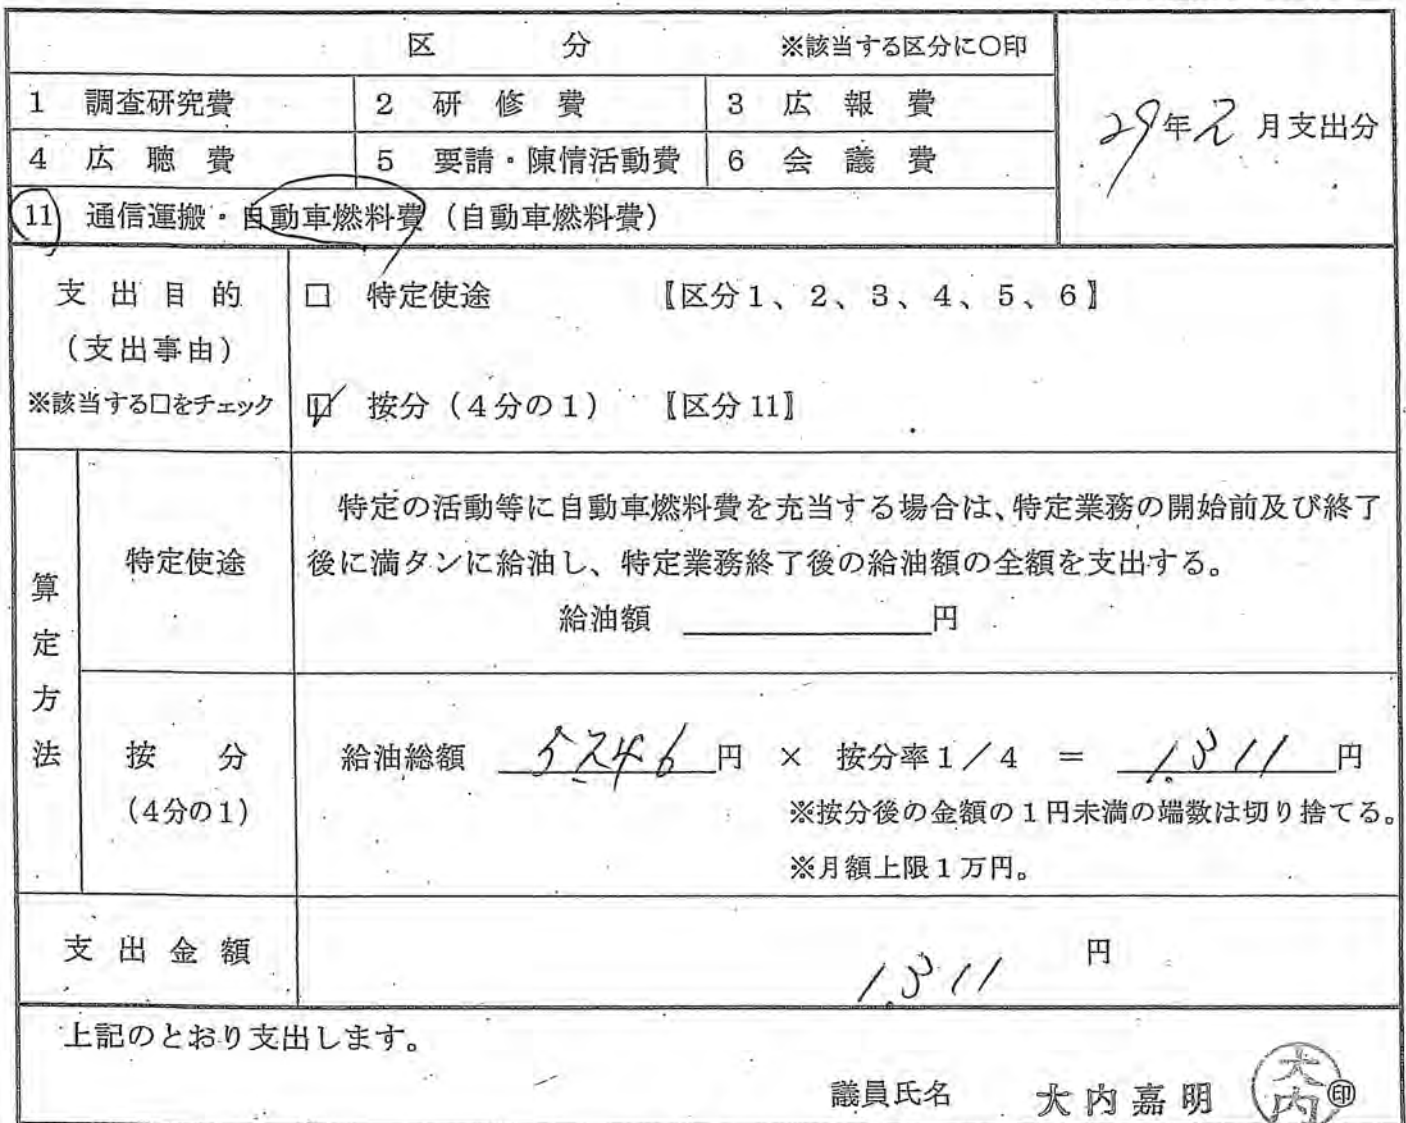 区 分 ※該当する区分に○印
1 調査研究費 2 研修費 3 広報費
29年2月支出分
4 広聴費 5 要請・陳情活動費 6 会議費
11 通信運搬・自動車燃料費(自動車燃料費)
支出目的
(支出事由)
※該当する□をチェック
□ 特定使途 【区分1、2、3、4、5、6】
☑ 按分(4分の1) 【区分11】
算定方法
特定使途
特定の活動等に自動車燃料費を充当する場合は、特定業務の開始前及び終了
後に満タンに給油し、特定業務終了後の給油額の全額を支出する。
給油額 円
按分
(4分の1)
給油総額 5,246円 × 按分率1/4 = 1,311円
※按分後の金額の1円未満の端数は切り捨てる。
※月額上限1万円。
支出金額 1,311円
上記のとおり支出します。
議員氏名 大内嘉明 ㊞
大内